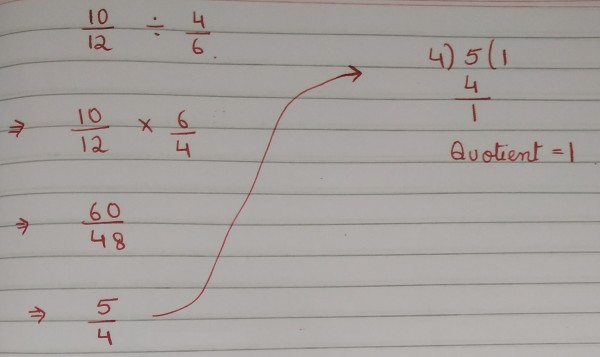 10/12 ÷ 4/6.
⇒ 10/12 × 6/4
⇒ 60/48
⇒ 5/4
4) 5 (1
4
1
Quotient = 1